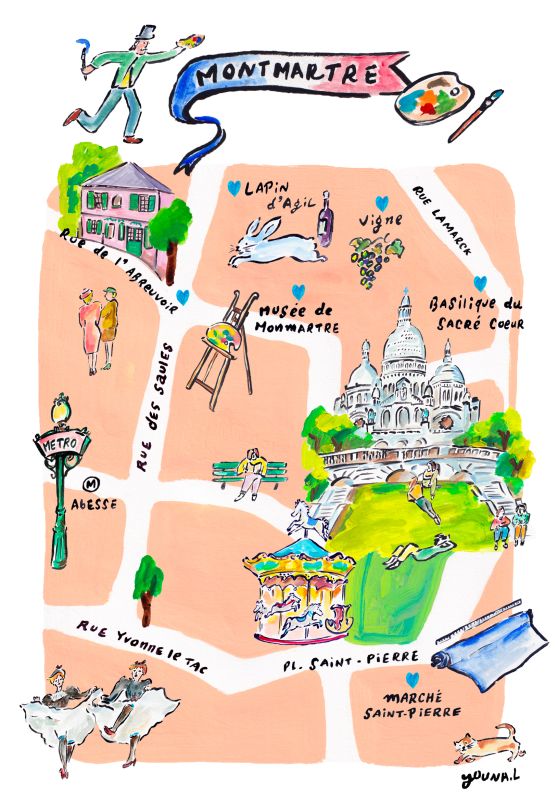 MONTMARTRE
LAPIN
d'Agil
Vigne
RUE LAMARCK
Rue de l'Abreuvoir
Musée de
Montmartre
Basilique du
Sacré Coeur
RUE DES SAULES
METRO
M
Abesse
Rue Yvonne le Tac
Pl. Saint-Pierre
marché
Saint-Pierre
YOUNA.L